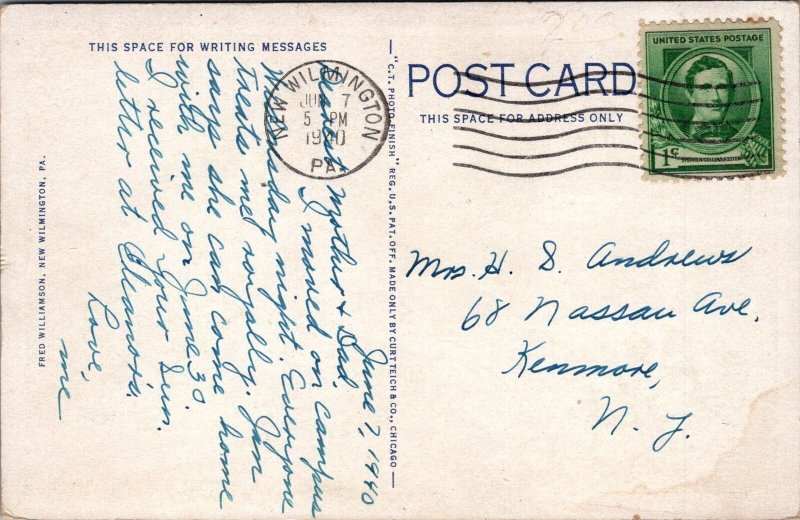 THIS SPACE FOR WRITING MESSAGES
June 7, 1940
Dearest Mother & Dad,
I moved on campus
Wednesday night. Everyone
treats me royally. Jan
says she can come home
with me on June 30
I received your Sun.
letter at Eleanor's.
Love,
me
NEW WILMINGTON
JUN 7
5 PM
1940
PA.
FRED WILLIAMSON, NEW WILMINGTON, PA.
"C.T. PHOTO-FINISH" REG. U.S. PAT. OFF. MADE ONLY BY CURT TEICH & CO., CHICAGO
POST CARD
THIS SPACE FOR ADDRESS ONLY
UNITED STATES POSTAGE
1¢
STEPHEN COLLINS FOSTER
Mrs. H. S. Andrews
68 Nassau Ave.
Kenmore,
N. Y.